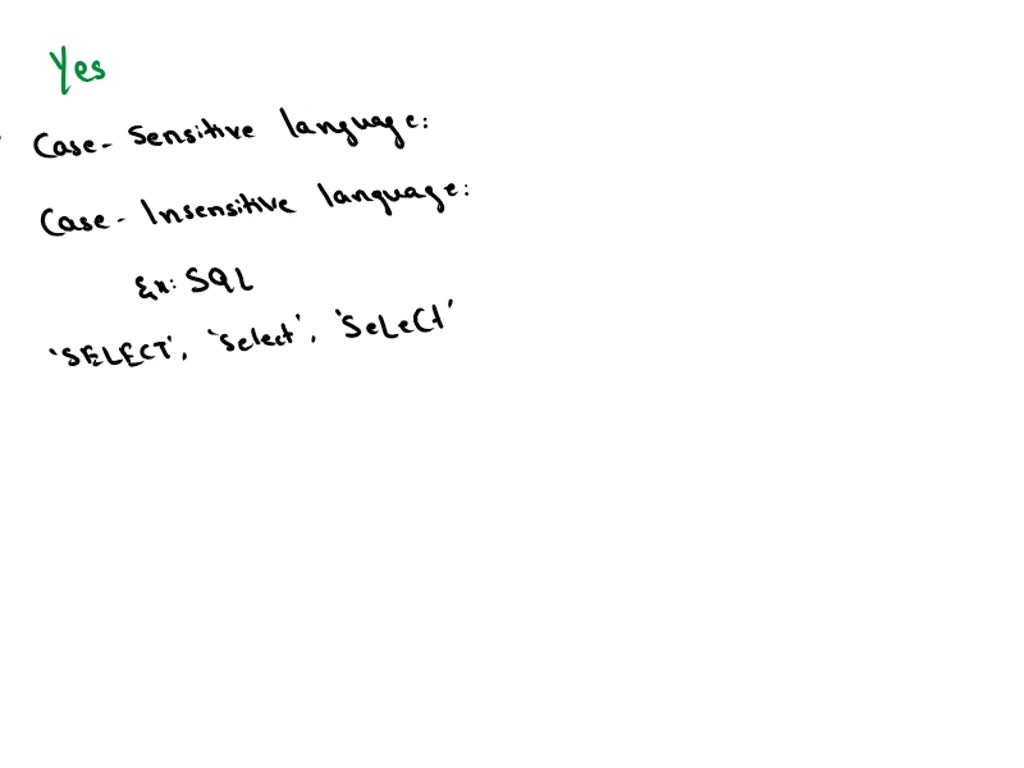 Yes
Case-Sensitive language:
Case-Insensitive language:
Ex: SQL
'SELECT', 'Select', 'SeLeCt'